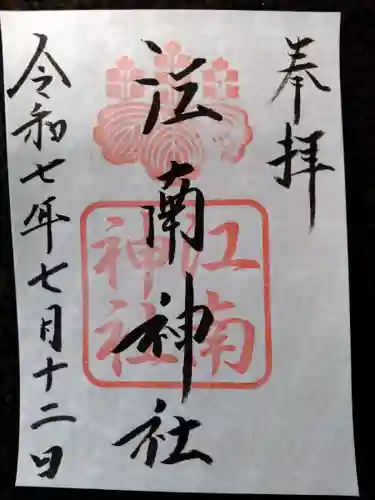 奉拝
江南神社
江南
神社
令和七年七月十二日